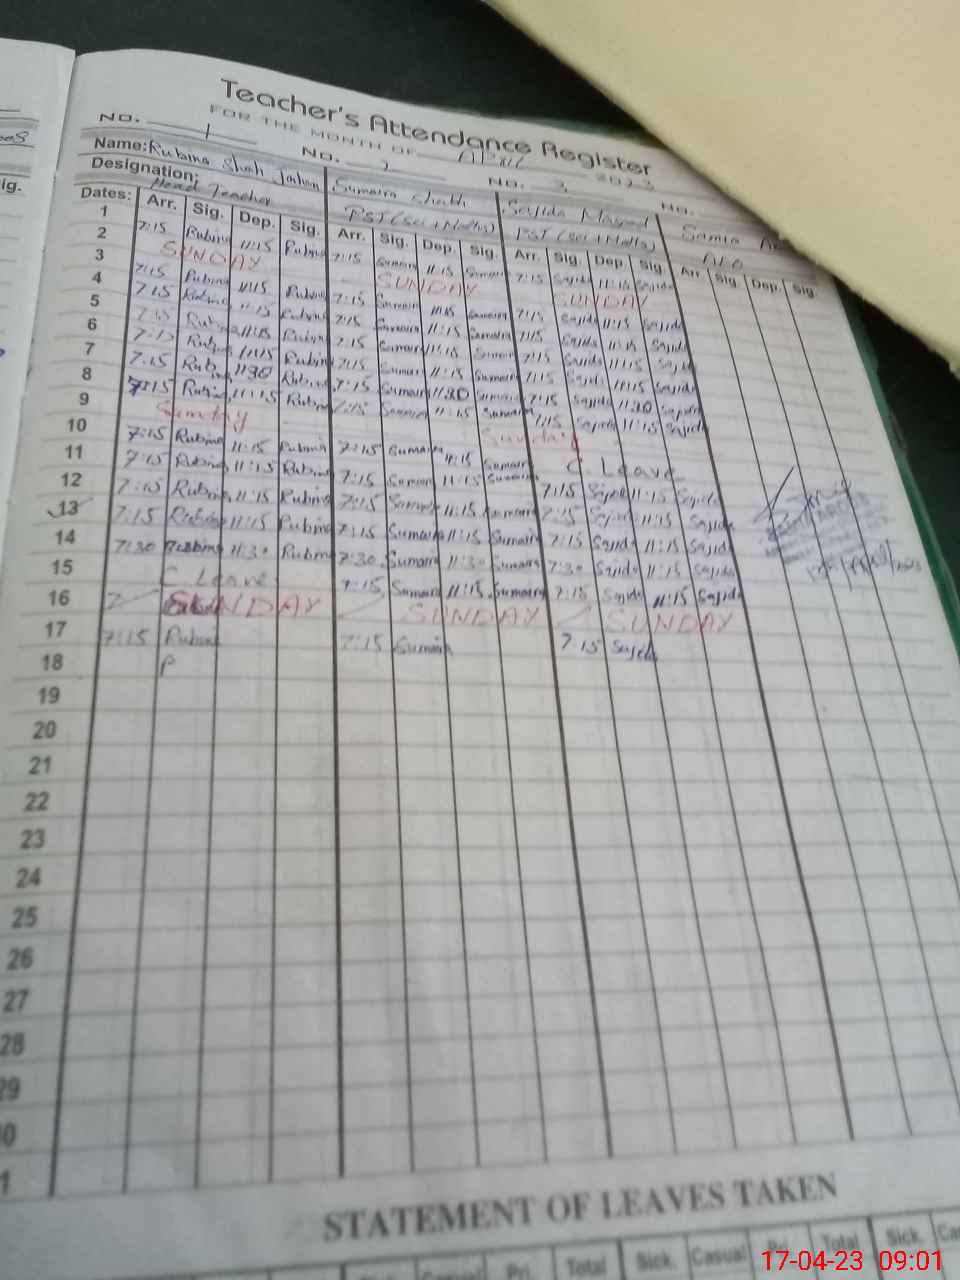 Teacher's Attendance Register
FOR THE MONTH OF April 2023
NO. 1 NO. 2 NO. 3 NO.
Name: Rubina Shah Jahan Sumaira Shah Sajida Samia
Designation: Head Teacher PST (Sci+Maths) PST (Sci+Maths)
Dates: Arr. Sig. Dep. Sig. Arr. Sig. Dep. Sig. Arr. Sig. Dep. Sig. Arr. Sig. Dep. Sig.
1 7:15 Rubina 11:15 Rubina 7:15 Sumaira 11:15 Sumaira 7:15 Sajida 11:15 Sajida
2 SUNDAY SUNDAY SUNDAY
3 7:15 Rubina 11:15 Rubina 7:15 Sumaira 11:15 Sumaira 7:15 Sajida 11:15 Sajida
4 7:15 Rubina 11:15 Rubina 7:15 Sumaira 11:15 Sumaira 7:15 Sajida 11:15 Sajida
5 7:15 Rubina 11:15 Rubina 7:15 Sumaira 11:15 Sumaira 7:15 Sajida 11:15 Sajida
6 7:15 Rubina 11:15 Rubina 7:15 Sumaira 11:15 Sumaira 7:15 Sajida 11:15 Sajida
7 7:15 Rubina 11:30 Rubina 7:15 Sumaira 11:30 Sumaira 7:15 Sajida 11:30 Sajida
8 7:15 Rubina 11:15 Rubina 7:15 Sumaira 11:15 Sumaira 7:15 Sajida 11:15 Sajida
9 Sunday Sunday
10 7:15 Rubina 11:15 Rubina 7:15 Sumaira 11:15 Sumaira C. Leave
11 7:15 Rubina 11:15 Rubina 7:15 Sumaira 11:15 Sumaira 7:15 Sajida 11:15 Sajida
12 7:15 Rubina 11:15 Rubina 7:15 Sumaira 11:15 Sumaira 7:15 Sajida 11:15 Sajida
13 7:15 Rubina 11:15 Rubina 7:15 Sumaira 11:15 Sumaira 7:15 Sajida 11:15 Sajida
14 7:30 Rubina 11:30 Rubina 7:30 Sumaira 11:30 Sumaira 7:30 Sajida 11:15 Sajida
15 C. Leave 7:15 Sumaira 11:15 Sumaira 7:15 Sajida 11:15 Sajida
16 SUNDAY SUNDAY SUNDAY
17 7:15 Rubina 7:15 Sumaira 7:15 Sajida
18 P
19
20
21
22
23
24
25
26
27
28
29
STATEMENT OF LEAVES TAKEN
Casual Pri. Total Sick. Casual Pri. Total Sick.
17-04-23 09:01